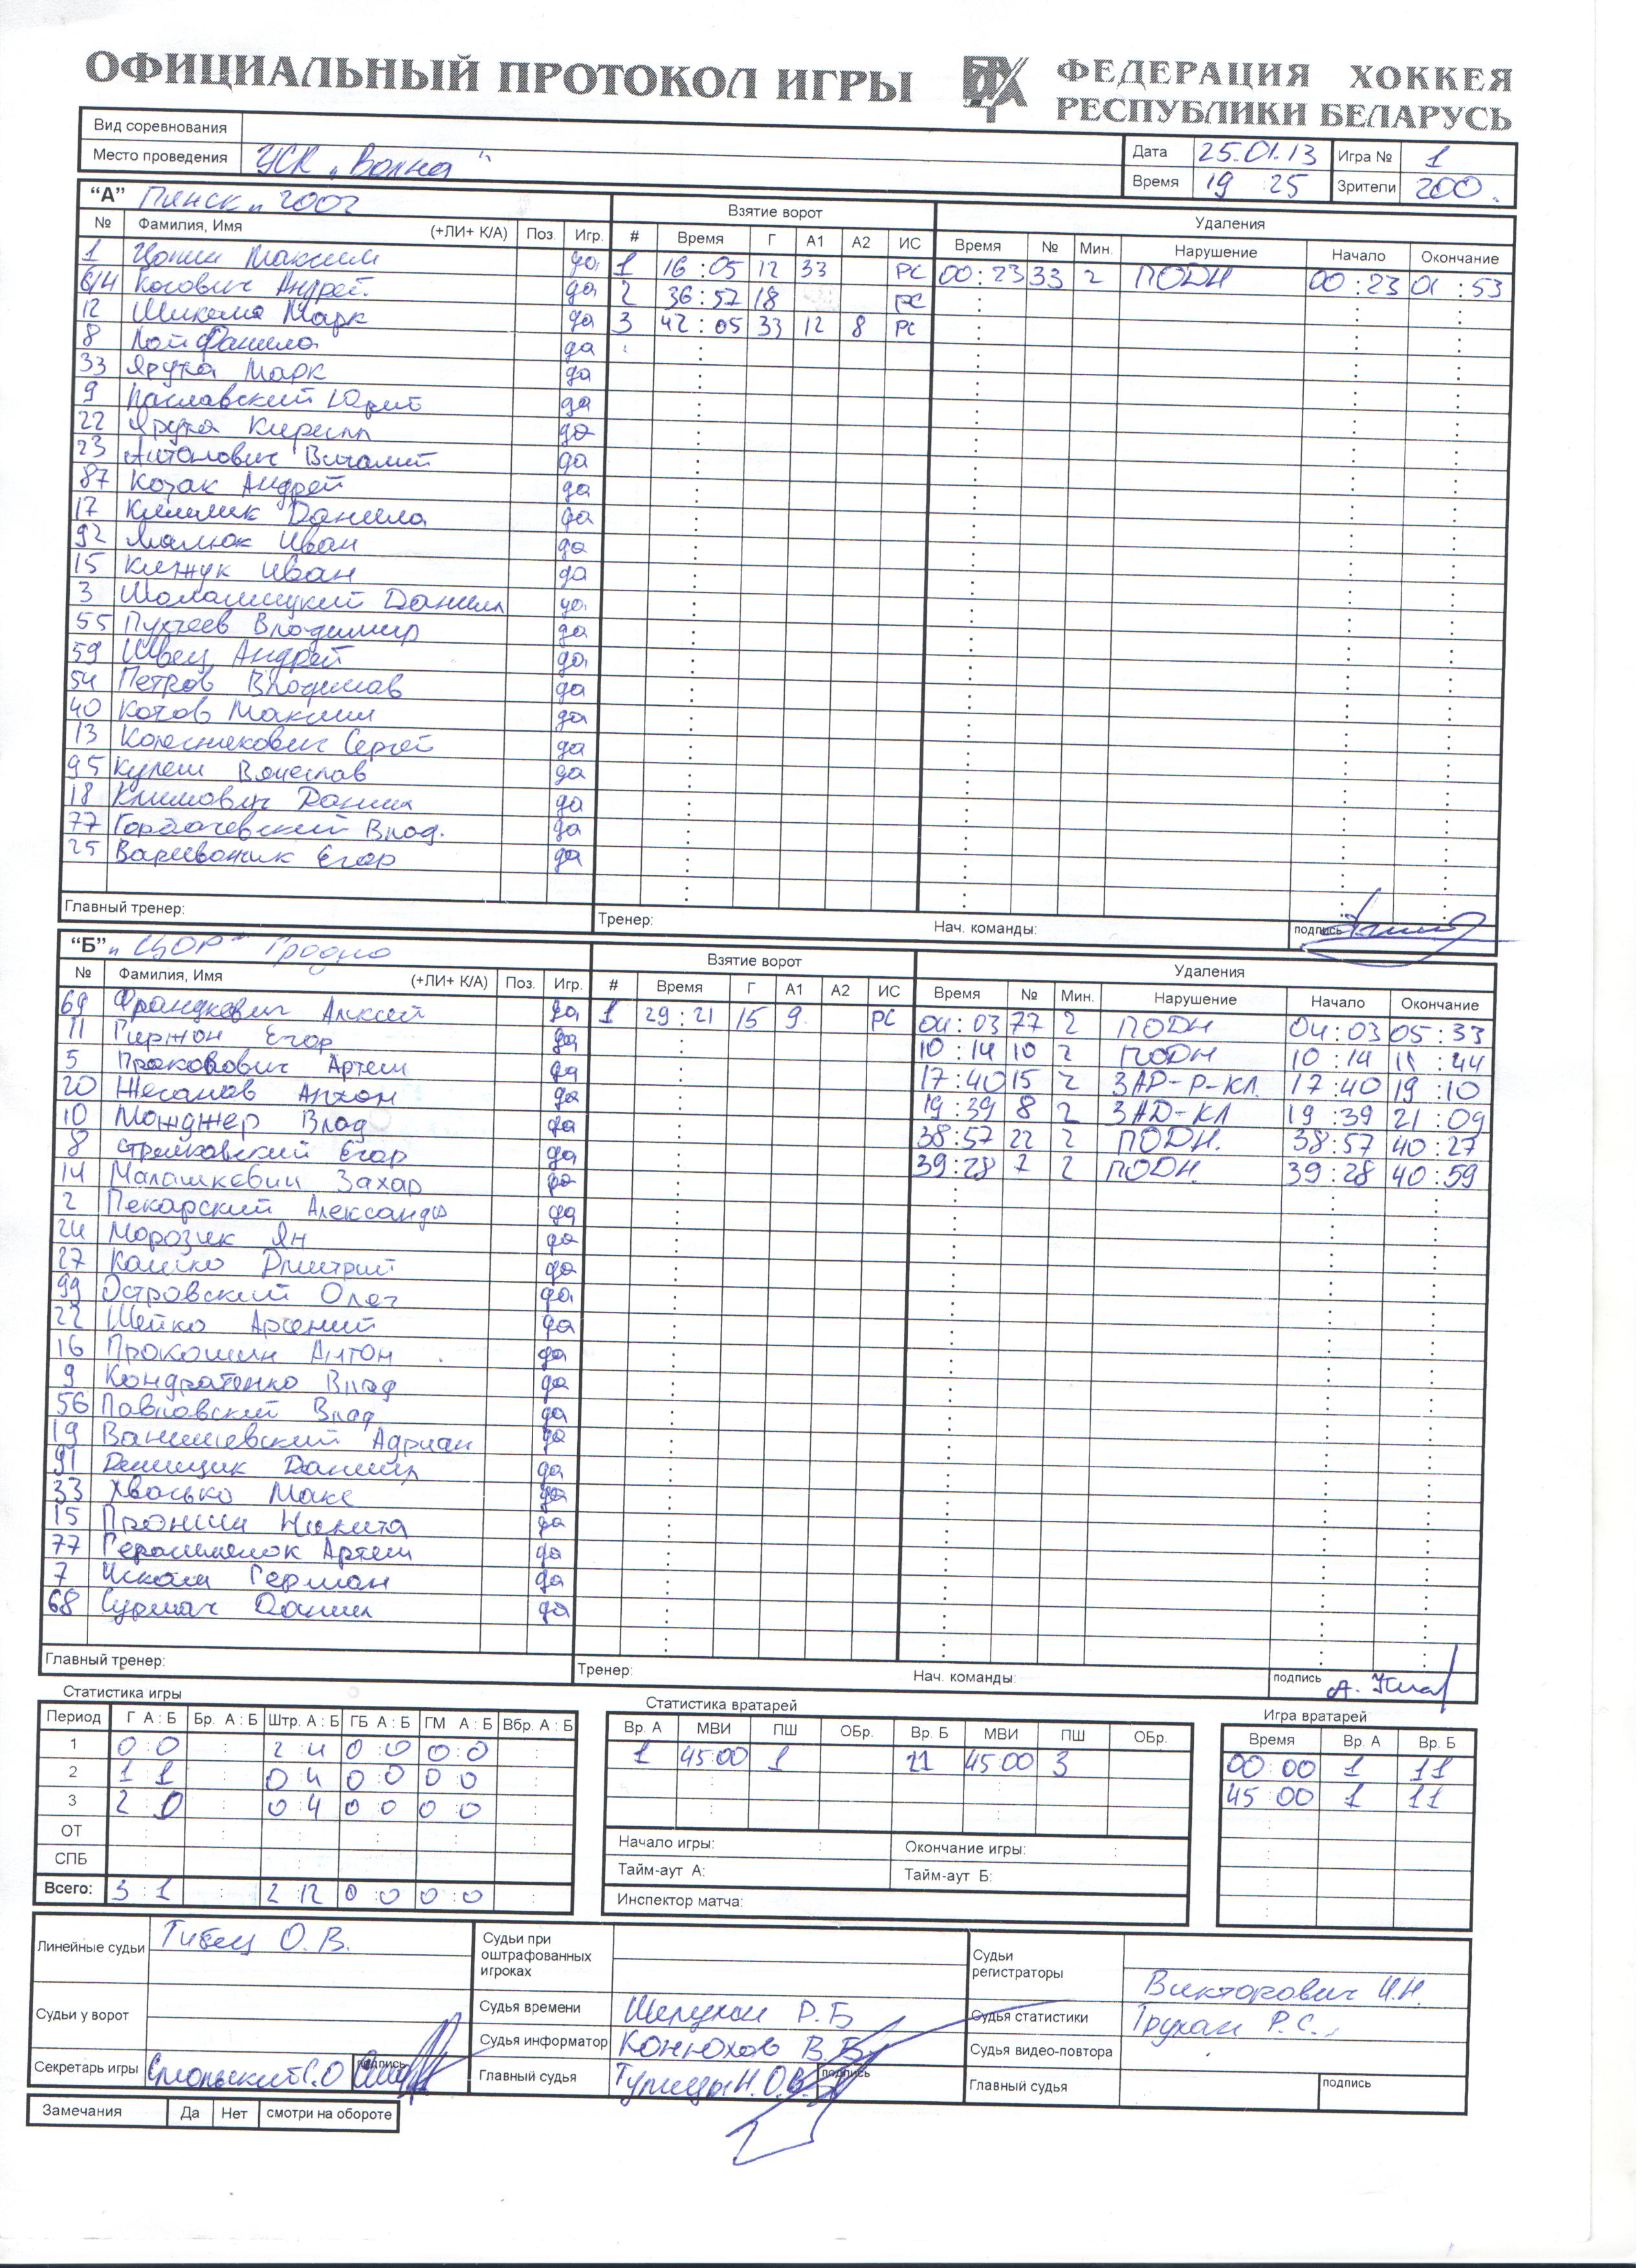 ОФИЦИАЛЬНЫЙ ПРОТОКОЛ ИГРЫ ФЕДЕРАЦИЯ ХОККЕЯ
РЕСПУБЛИКИ БЕЛАРУСЬ
Вид соревнования
Место проведения УСК „Волна“ Дата 25.01.13 Игра № 1
Время 19:25 Зрители 200.
“А” Пинск„ 2002 Взятие ворот Удаления
№ Фамилия, Имя (+ЛИ+ К/А) Поз. Игр. # Время Г А1 А2 ИС Время № Мин. Нарушение Начало Окончание
1 Максим да 1 16:05 12 33 РС 00:23 33 2 ПОДН 00:23 01:53
Косович Андрей да 2 36:57 18 РС
12 Шикела Марк да 3 42:05 33 12 8 РС
8 Лой Данила да
33 Ярута Марк да
9 Паславский Юрий да
22 Ярута Кирилл да
23 Антонович Виталий да
87 Козак Андрей да
17 Климик Данила да
92 Малюк Иван да
15 Кижук Иван да
3 Шоломицкий Даниил да
55 Пухтеев Владимир да
59 Швец Андрей да
54 Петров Владислав да
40 Котов Максим да
13 Колесникович Сергей да
95 Кулеш Вячеслав да
18 Климович Даниил да
77 Горбачевский Влад. да
25 Варивончик Егор да
Главный тренер: Тренер: Нач. команды: подпись
“Б” „ЦОР“ Гродно Взятие ворот Удаления
№ Фамилия, Имя (+ЛИ+ К/А) Поз. Игр. # Время Г А1 А2 ИС Время № Мин. Нарушение Начало Окончание
69 Францкевич Алексей да 1 29:21 15 9 РС 04:03 77 2 ПОДН 04:03 05:33
11 Гиржон Егор да 10:14 10 2 ПОДН 10:14 11:44
5 Пракопович Артем да 17:40 15 2 ЗАР-Р-КЛ. 17:40 19:10
20 Жесанов Антон да 19:39 8 2 ЗАД-КЛ 19:39 21:09
10 Монджер Влад да 38:57 22 2 ПОДН. 38:57 40:27
8 Стрелковский Егор да 39:28 7 2 ПОДН. 39:28 40:59
14 Малашкевич Захар да
2 Пекарский Александр да
24 Морозик Ян да
27 Кашко Дмитрий да
99 Островский Олег да
22 Шейко Арсений да
16 Прокошин Антон да
9 Кондратенко Влад да
56 Павловский Влад да
19 Ванишевский Адриан да
91 Денищик Даниил да
33 Хвасько Макс да
15 Пронин Никита да
77 Герасименок Артем да
7 Искаш Герман да
68 Сурмач Даниил да
Главный тренер: Тренер: Нач. команды: подпись
Статистика игры Статистика вратарей Игра вратарей
Период Г А : Б Бр. А : Б Штр. А : Б ГБ А : Б ГМ А : Б Вбр. А : Б Вр. А МВИ ПШ ОБр. Вр. Б МВИ ПШ ОБр. Время Вр. А Вр. Б
1 0:0 2:4 0:0 0:0 1 45:00 1 11 45:00 3 00:00 1 11
2 1:1 0:4 0:0 0:0 45:00 1 11
3 2:0 0:4 0:0 0:0
ОТ
СПБ
Всего: 3:1 2:12 0:0 0:0
Начало игры: Окончание игры:
Тайм-аут А: Тайм-аут Б:
Инспектор матча:
Линейные судьи Гибец О.В. Судьи при оштрафованных игроках Судьи регистраторы Викторович И.Н.
Судьи у ворот Судья времени Шелухин Р.Б Судья статистики Трухан Р.С.
Судья информатор Конюхов В.В. Судья видео-повтора
Секретарь игры Смольский С.О подпись Главный судья подпись Главный судья подпись
Замечания Да Нет смотри на обороте